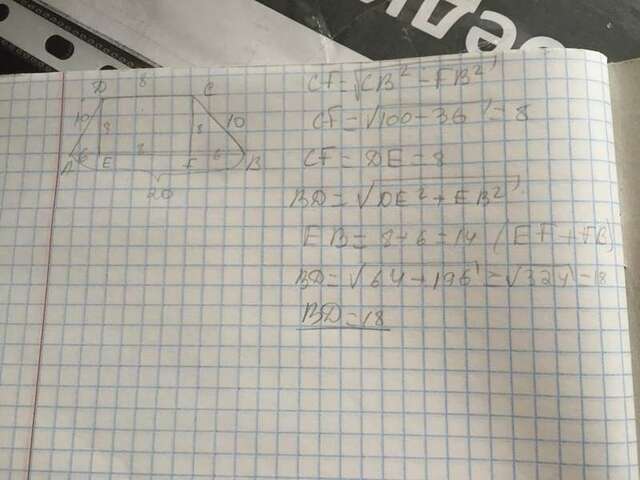 D 8 C
10 8 8 10
A 6 E 8 F 6 B
20
CF=√CB²-FB²
CF=√100-36=8
CF=DE=8
BD=√DE²+EB²
EB=8+6=14 (EF+FB)
BD=√64+196=√324=18
BD=18